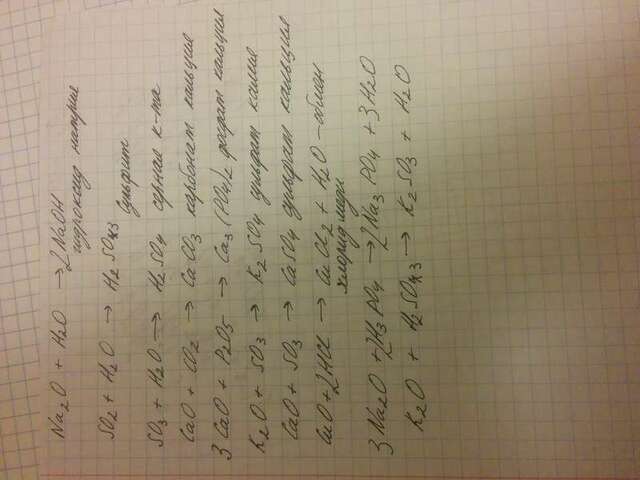 Na2O + H2O → 2NaOH
гидроксид натрия
SO2 + H2O → H2SO3
сульфит
SO3 + H2O → H2SO4 серная к-та
CaO + CO2 → CaCO3 карбонат кальция
3CaO + P2O5 → Ca3(PO4)2 фосфат кальция
K2O + SO3 → K2SO4 сульфат калия
CaO + SO3 → CaSO4 сульфат кальция
CuO + 2HCl → CuCl2 + H2O - обмен
хлорид меди
3Na2O + 2H3PO4 → 2Na3PO4 + 3H2O
K2O + H2SO3 → K2SO3 + H2O